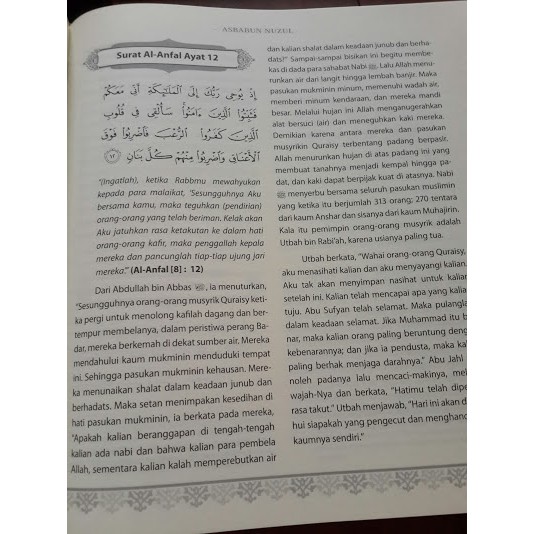 ASBABUN NUZUL
Surat Al-Anfal Ayat 12
إِذْ يُوحِى رَبُّكَ إِلَى ٱلْمَلَـٰٓئِكَةِ أَنِّى مَعَكُمْ
فَثَبِّتُوا۟ ٱلَّذِينَ ءَامَنُوا۟ سَأُلْقِى فِى قُلُوبِ
ٱلَّذِينَ كَفَرُوا۟ ٱلرُّعْبَ فَٱضْرِبُوا۟ فَوْقَ
ٱلْأَعْنَاقِ وَٱضْرِبُوا۟ مِنْهُمْ كُلَّ بَنَانٍ ١٢
"(Ingatlah), ketika Rabbmu mewahyukan
kepada para malaikat, 'Sesungguhnya Aku
bersama kamu, maka teguhkan (pendirian)
orang-orang yang telah beriman. Kelak akan
Aku jatuhkan rasa ketakutan ke dalam hati
orang-orang kafir, maka penggallah kepala
mereka dan pancunglah tiap-tiap ujung jari
mereka.'" (Al-Anfal [8] : 12)
Dari Abdullah bin Abbas ia menuturkan,
"Sesungguhnya orang-orang musyrik Quraisy keti-
ka pergi untuk menolong kafilah dagang dan ber-
tempur membelanya, dalam peristiwa perang Ba-
dar, mereka berkemah di dekat sumber air. Mereka
mendahului kaum mukminin menduduki tempat
ini. Sehingga pasukan mukminin kehausan. Mere-
ka menunaikan shalat dalam keadaan junub dan
berhadats. Maka setan menimpakan kesedihan di
hati pasukan mukminin, ia berkata pada mereka,
"Apakah kalian beranggapan di tengah-tengah
kalian ada nabi dan bahwa kalian para pembela
Allah, sementara kalian kalah memperebutkan air
dan kalian shalat dalam keadaan junub dan berha-
dats?" Sampai-sampai bisikan ini begitu membe-
kas di dada para sahabat Nabi ﷺ. Lalu Allah menu-
runkan air dari langit hingga lembah banjir. Maka
pasukan mukminin minum, memenuhi wadah air,
memberi minum kendaraan, dan mereka mandi
besar. Melalui hujan ini Allah menganugerahkan
alat bersuci (air) dan meneguhkan kaki mereka.
Demikian karena antara mereka dan pasukan
musyrikin Quraisy terbentang padang berpasir.
Allah menurunkan hujan di atas padang ini yang
membuat tanahnya menjadi kempal hingga pa-
dat, dan kaki dapat berpijak kuat di atasnya. Nabi
ﷺ menyerbu bersama seluruh pasukan muslimin
yang ketika itu berjumlah 313 orang; 270 tentara
dari kaum Anshar dan sisanya dari kaum Muhajirin.
Kala itu pemimpin orang-orang musyrik adalah
Utbah bin Rabi'ah, karena usianya paling tua.
Utbah berkata, "Wahai orang-orang Quraisy,
aku menasihati kalian dan aku menyayangi kalian.
Aku tak akan menyimpan nasihat untuk kalian
setelah ini. Kalian telah mencapai apa yang kalian
tuju. Abu Sufyan telah selamat. Maka pulangla
dalam keadaan selamat. Jika Muhammad itu b
nar, maka kalian orang paling beruntung deng
kebenarannya; dan jika ia pendusta, maka kal
paling berhak menjaga darahnya." Abu Jahl
noleh padanya lalu mencaci-makinya, mel
wajah-Nya dan berkata, "Hatimu telah dipe
rasa takut." Utbah menjawab, "Hari ini akan d
hui siapakah yang pengecut dan menghanc
kaumnya sendiri."